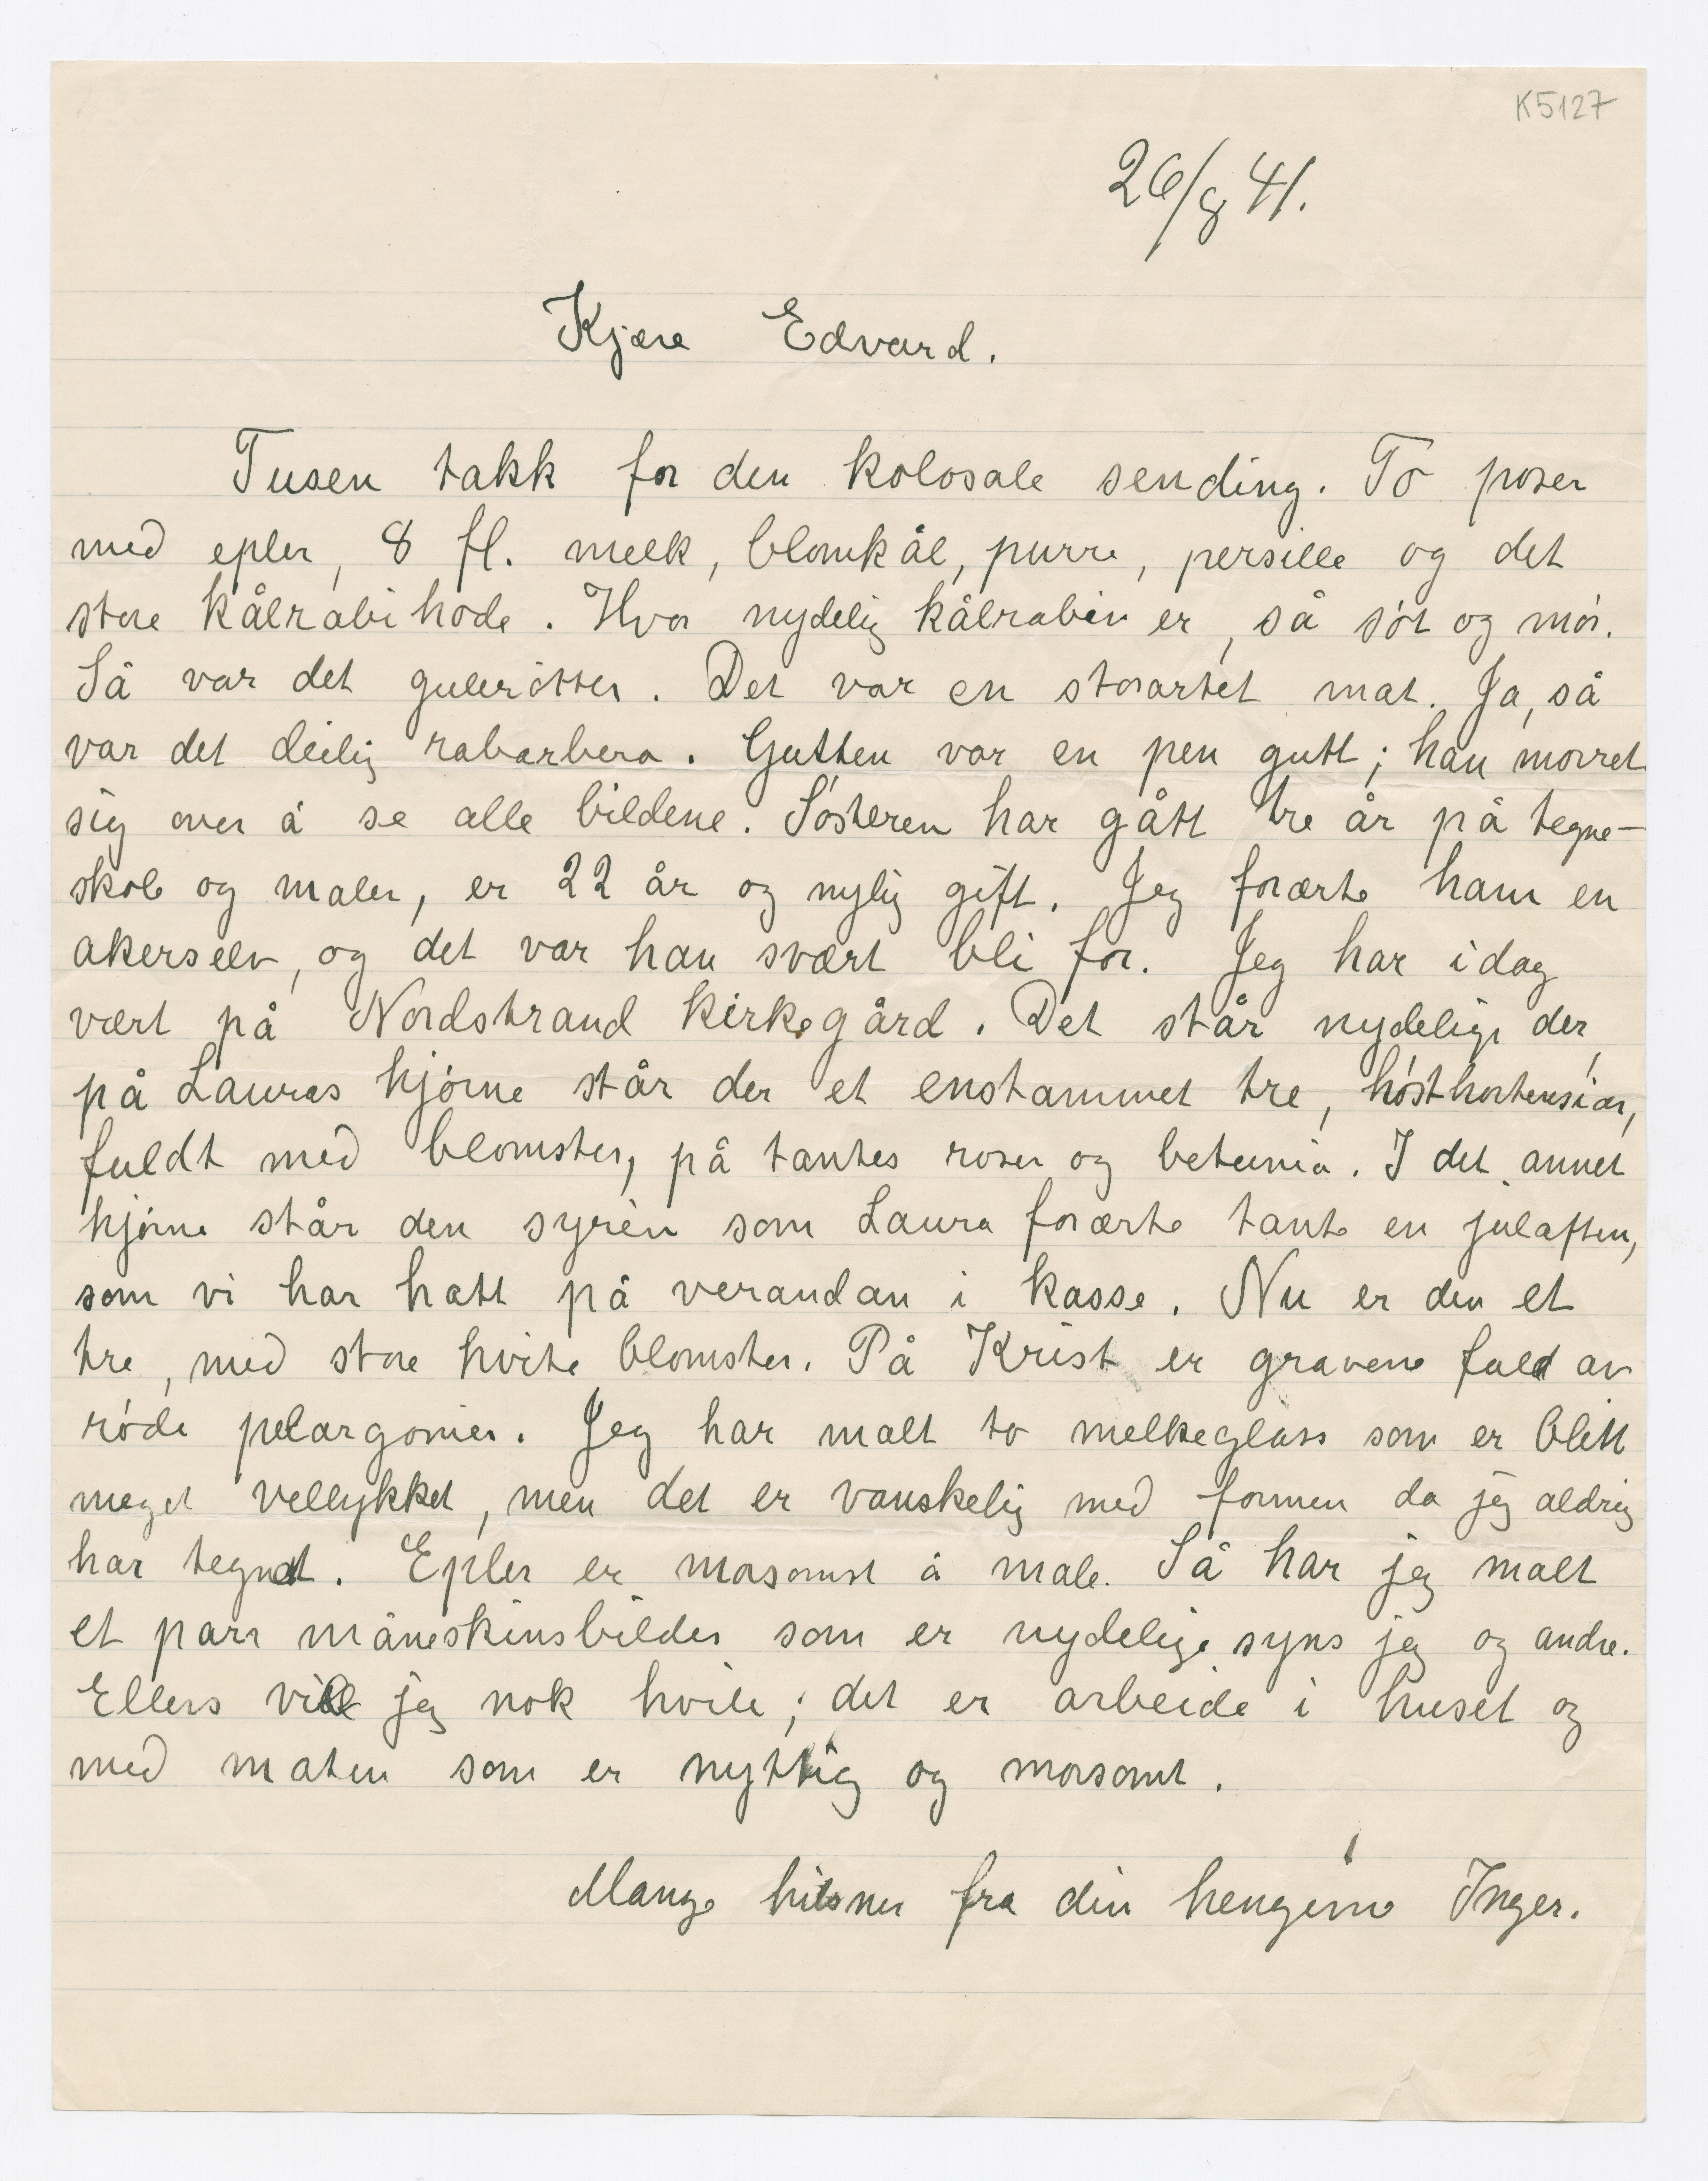 K5127
26/8 41.
Kjære Edvard.
Tusen takk for den kolosale sending. To poser
med epler, 8 fl. melk, blomkål, purre, persille og det
store kålrabihode. Hvor nydelig kålrabien er, så søt og mør.
Så var det gulerøtter. Det var en storartet mat. Ja, så
var det deilig rabarbera. Gutten var en pen gutt; han morret
sig over å se alle bildene. Søsteren har gått tre år på tegne-
skole og maler, er 22 år og nylig gift. Jeg forærte ham en
akerselv, og det var han svært bli for. Jeg har idag
vært på Nordstrand kirkegård. Det står nydelige der,
på Lauras hjørne står der et enstammet tre, høsthortensiar,
fuldt med blomster, på tantes roser og betunia. I det annet
hjørne står den syrèn som Laura forærte tante en julaften,
som vi har hatt på verandan i kasse. Nu er den et
tre, med store hvite blomster. På Krist er gravene fuld av
røde pelargonier. Jeg har malt to melkeglass som er blitt
meget vellykket, men det er vanskelig med formen da jeg aldrig
har tegnet. Epler er morsomst å male. Så har jeg malt
et parr måneskinsbilder som er nydelige syns jeg og andre.
Ellers vill jeg nok hvile; det er arbeide i huset og
med maten som er nyttig og morsomt.
Mange hilsner fra din hengivne Inger.